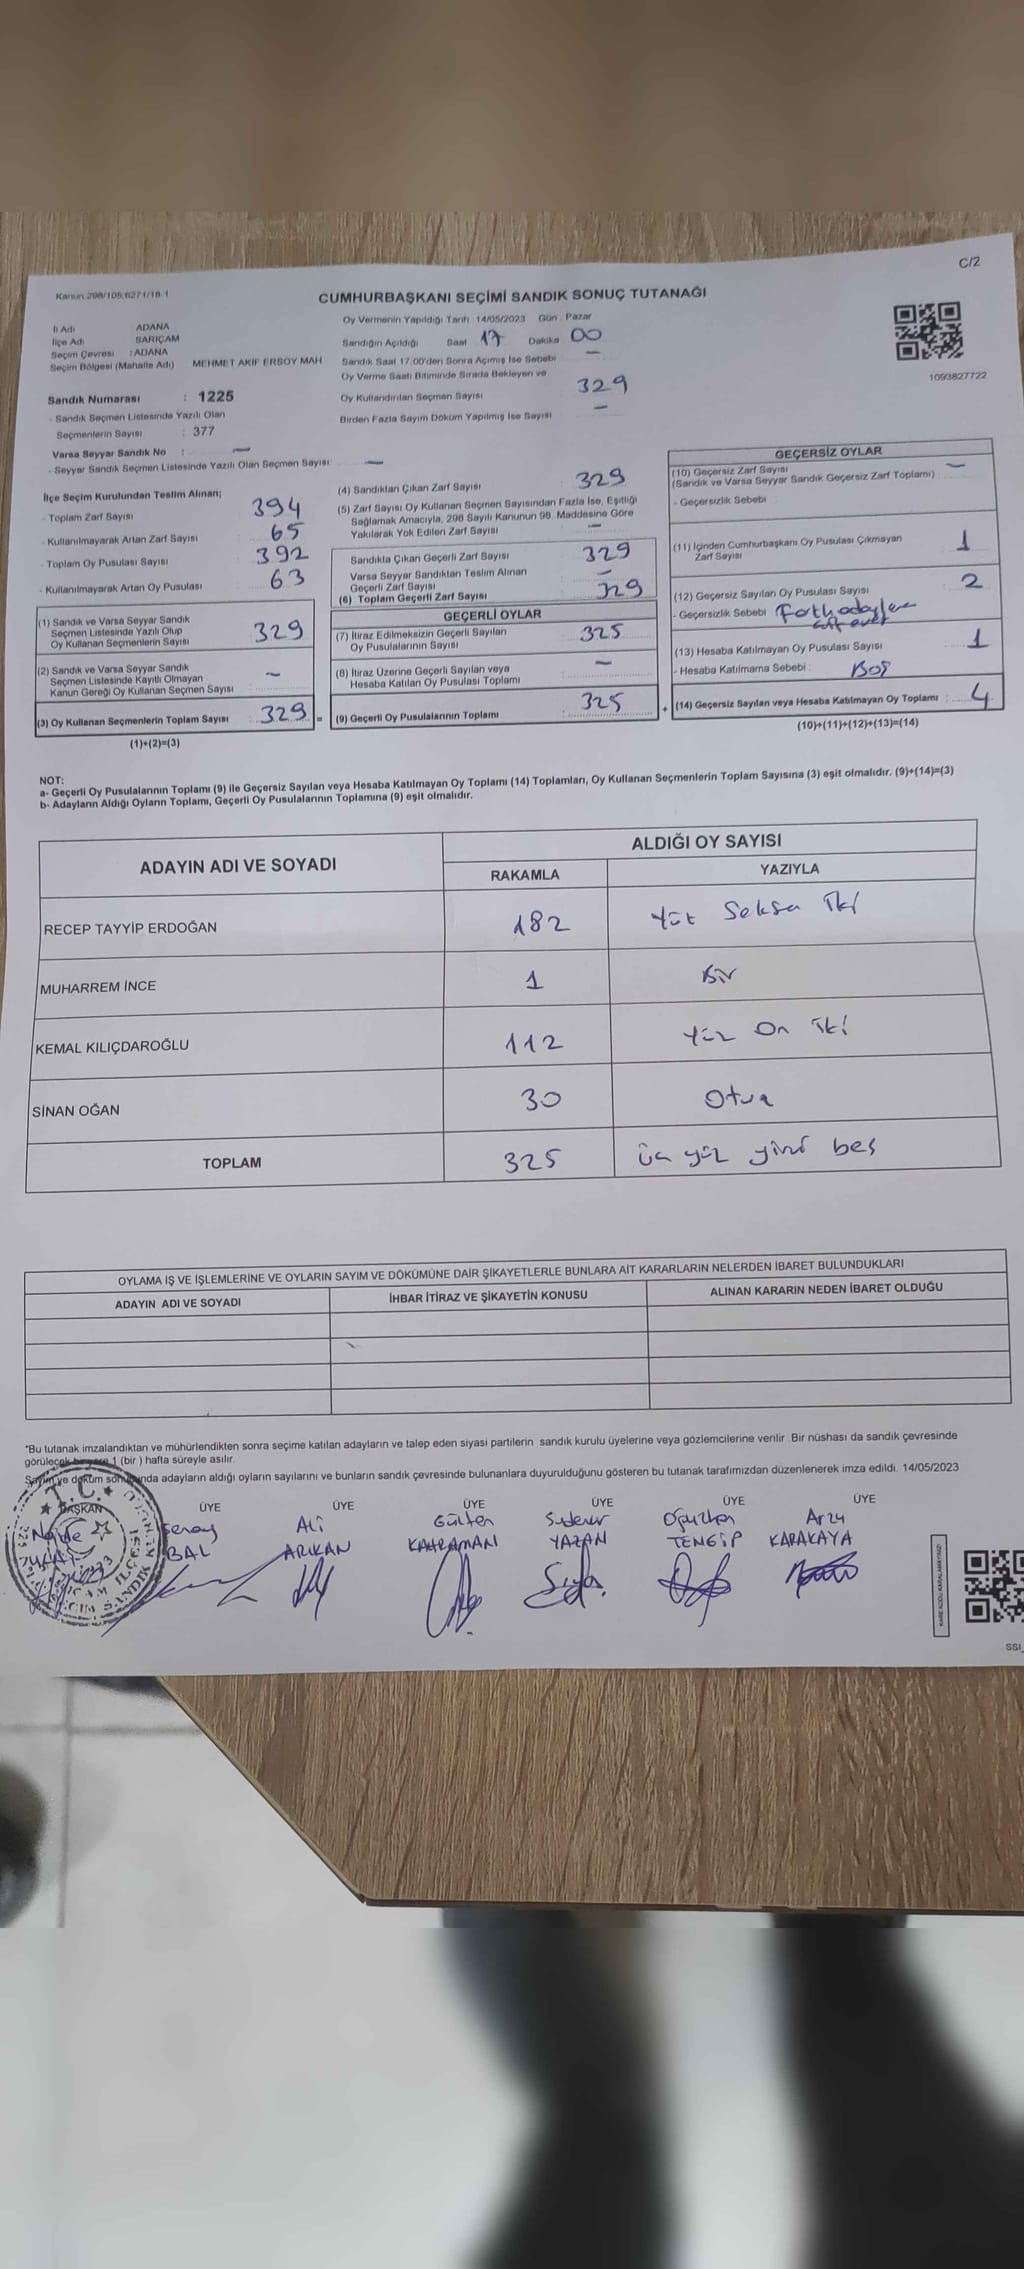 C/2
Kanun:298/105,6271/18-1
CUMHURBAŞKANI SEÇİMİ SANDIK SONUÇ TUTANAĞI
İl Adı ADANA
İlçe Adı SARIÇAM
Seçim Çevresi : ADANA
Seçim Bölgesi (Mahalle Adı) MEHMET AKİF ERSOY MAH
Oy Vermenin Yapıldığı Tarih :14/05/2023 Gün : Pazar
Sandığın Açıldığı Saat 17 Dakika 00
Sandık Saat 17.00'den Sonra Açımış İse Sebebi –
Oy Verme Saati Bitiminde Sırada Bekleyen ve
Oy Kullandırılan Seçmen Sayısı 329
Birden Fazla Sayım Döküm Yapılmış İse Sayısı –
1093827722
Sandık Numarası : 1225
- Sandık Seçmen Listesinde Yazılı Olan
Seçmenlerin Sayısı : 377
Varsa Seyyar Sandık No : –
- Seyyar Sandık Seçmen Listesinde Yazılı Olan Seçmen Sayısı: –
İlçe Seçim Kurulundan Teslim Alınan;
- Toplam Zarf Sayısı 394
- Kullanılmayarak Artan Zarf Sayısı 65
- Toplam Oy Pusulası Sayısı 392
- Kullanılmayarak Artan Oy Pusulası 63
(1) Sandık ve Varsa Seyyar Sandık
Seçmen Listesinde Yazılı Olup
Oy Kullanan Seçmenlerin Sayısı 329
(2) Sandık ve Varsa Seyyar Sandık
Seçmen Listesinde Kayıtlı Olmayan
Kanun Gereği Oy Kullanan Seçmen Sayısı –
(3) Oy Kullanan Seçmenlerin Toplam Sayısı : 329 =
(1)+(2)=(3)
(4) Sandıktan Çıkan Zarf Sayısı : 329
(5) Zarf Sayısı Oy Kullanan Seçmen Sayısından Fazla İse, Eşitliği
Sağlamak Amacıyla, 298 Sayılı Kanunun 98. Maddesine Göre
Yakılarak Yok Edilen Zarf Sayısı –
Sandıkta Çıkan Geçerli Zarf Sayısı : 329
Varsa Seyyar Sandıktan Teslim Alınan
Geçerli Zarf Sayısı –
(6) Toplam Geçerli Zarf Sayısı : 329
GEÇERLİ OYLAR
(7) İtiraz Edilmeksizin Geçerli Sayılan
Oy Pusulalarının Sayısı : 325
(8) İtiraz Üzerine Geçerli Sayılan veya
Hesaba Katılan Oy Pusulası Toplamı : –
(9) Geçerli Oy Pusulalarının Toplamı : 325 +
GEÇERSİZ OYLAR
(10) Geçersiz Zarf Sayısı
(Sandık ve Varsa Seyyar Sandık Geçersiz Zarf Toplamı) : –
- Geçersizlik Sebebi :
(11) İçinden Cumhurbaşkanı Oy Pusulası Çıkmayan
Zarf Sayısı 1
(12) Geçersiz Sayılan Oy Pusulası Sayısı : 2
- Geçersizlik Sebebi :
(13) Hesaba Katılmayan Oy Pusulası Sayısı : 1
- Hesaba Katılmama Sebebi : Boş
(14) Geçersiz Sayılan veya Hesaba Katılmayan Oy Toplamı : 4
(10)+(11)+(12)+(13)=(14)
NOT:
a- Geçerli Oy Pusulalarının Toplamı (9) ile Geçersiz Sayılan veya Hesaba Katılmayan Oy Toplamı (14) Toplamları, Oy Kullanan Seçmenlerin Toplam Sayısına (3) eşit olmalıdır. (9)+(14)=(3)
b- Adayların Aldığı Oyların Toplamı, Geçerli Oy Pusulalarının Toplamına (9) eşit olmalıdır.
ADAYIN ADI VE SOYADI
ALDIĞI OY SAYISI
RAKAMLA YAZIYLA
RECEP TAYYİP ERDOĞAN 182 Yüz Seksen İki
MUHARREM İNCE 1 Bir
KEMAL KILIÇDAROĞLU 112 Yüz On İki
SİNAN OĞAN 30 Otuz
TOPLAM 325 üç yüz yirmi beş
OYLAMA İŞ VE İŞLEMLERİNE VE OYLARIN SAYIM VE DÖKÜMÜNE DAİR ŞİKAYETLERLE BUNLARA AİT KARARLARIN NELERDEN İBARET BULUNDUKLARI
ADAYIN ADI VE SOYADI İHBAR İTİRAZ VE ŞİKAYETİN KONUSU ALINAN KARARIN NEDEN İBARET OLDUĞU
*Bu tutanak imzalandıktan ve mühürlendikten sonra seçime katılan adayların ve talep eden siyasi partilerin sandık kurulu üyelerine veya gözlemcilerine verilir. Bir nüshası da sandık çevresinde
görülecek bir yere 1 (bir ) hafta süreyle asılır.
Sayım ve döküm sonucunda adayların aldığı oyların sayılarını ve bunların sandık çevresinde bulunanlara duyurulduğunu gösteren bu tutanak tarafımızdan düzenlenerek imza edildi. 14/05/2023
T.C.
BAŞKAN ÜYE ÜYE ÜYE ÜYE ÜYE ÜYE
Seray Ali Gülten Oğuzhan Arzu
BAL ARIKAN KAHRAMAN YAZAN TENGİP KARAKAYA
KARE KODU KARALAMAYINIZ!
SSI_